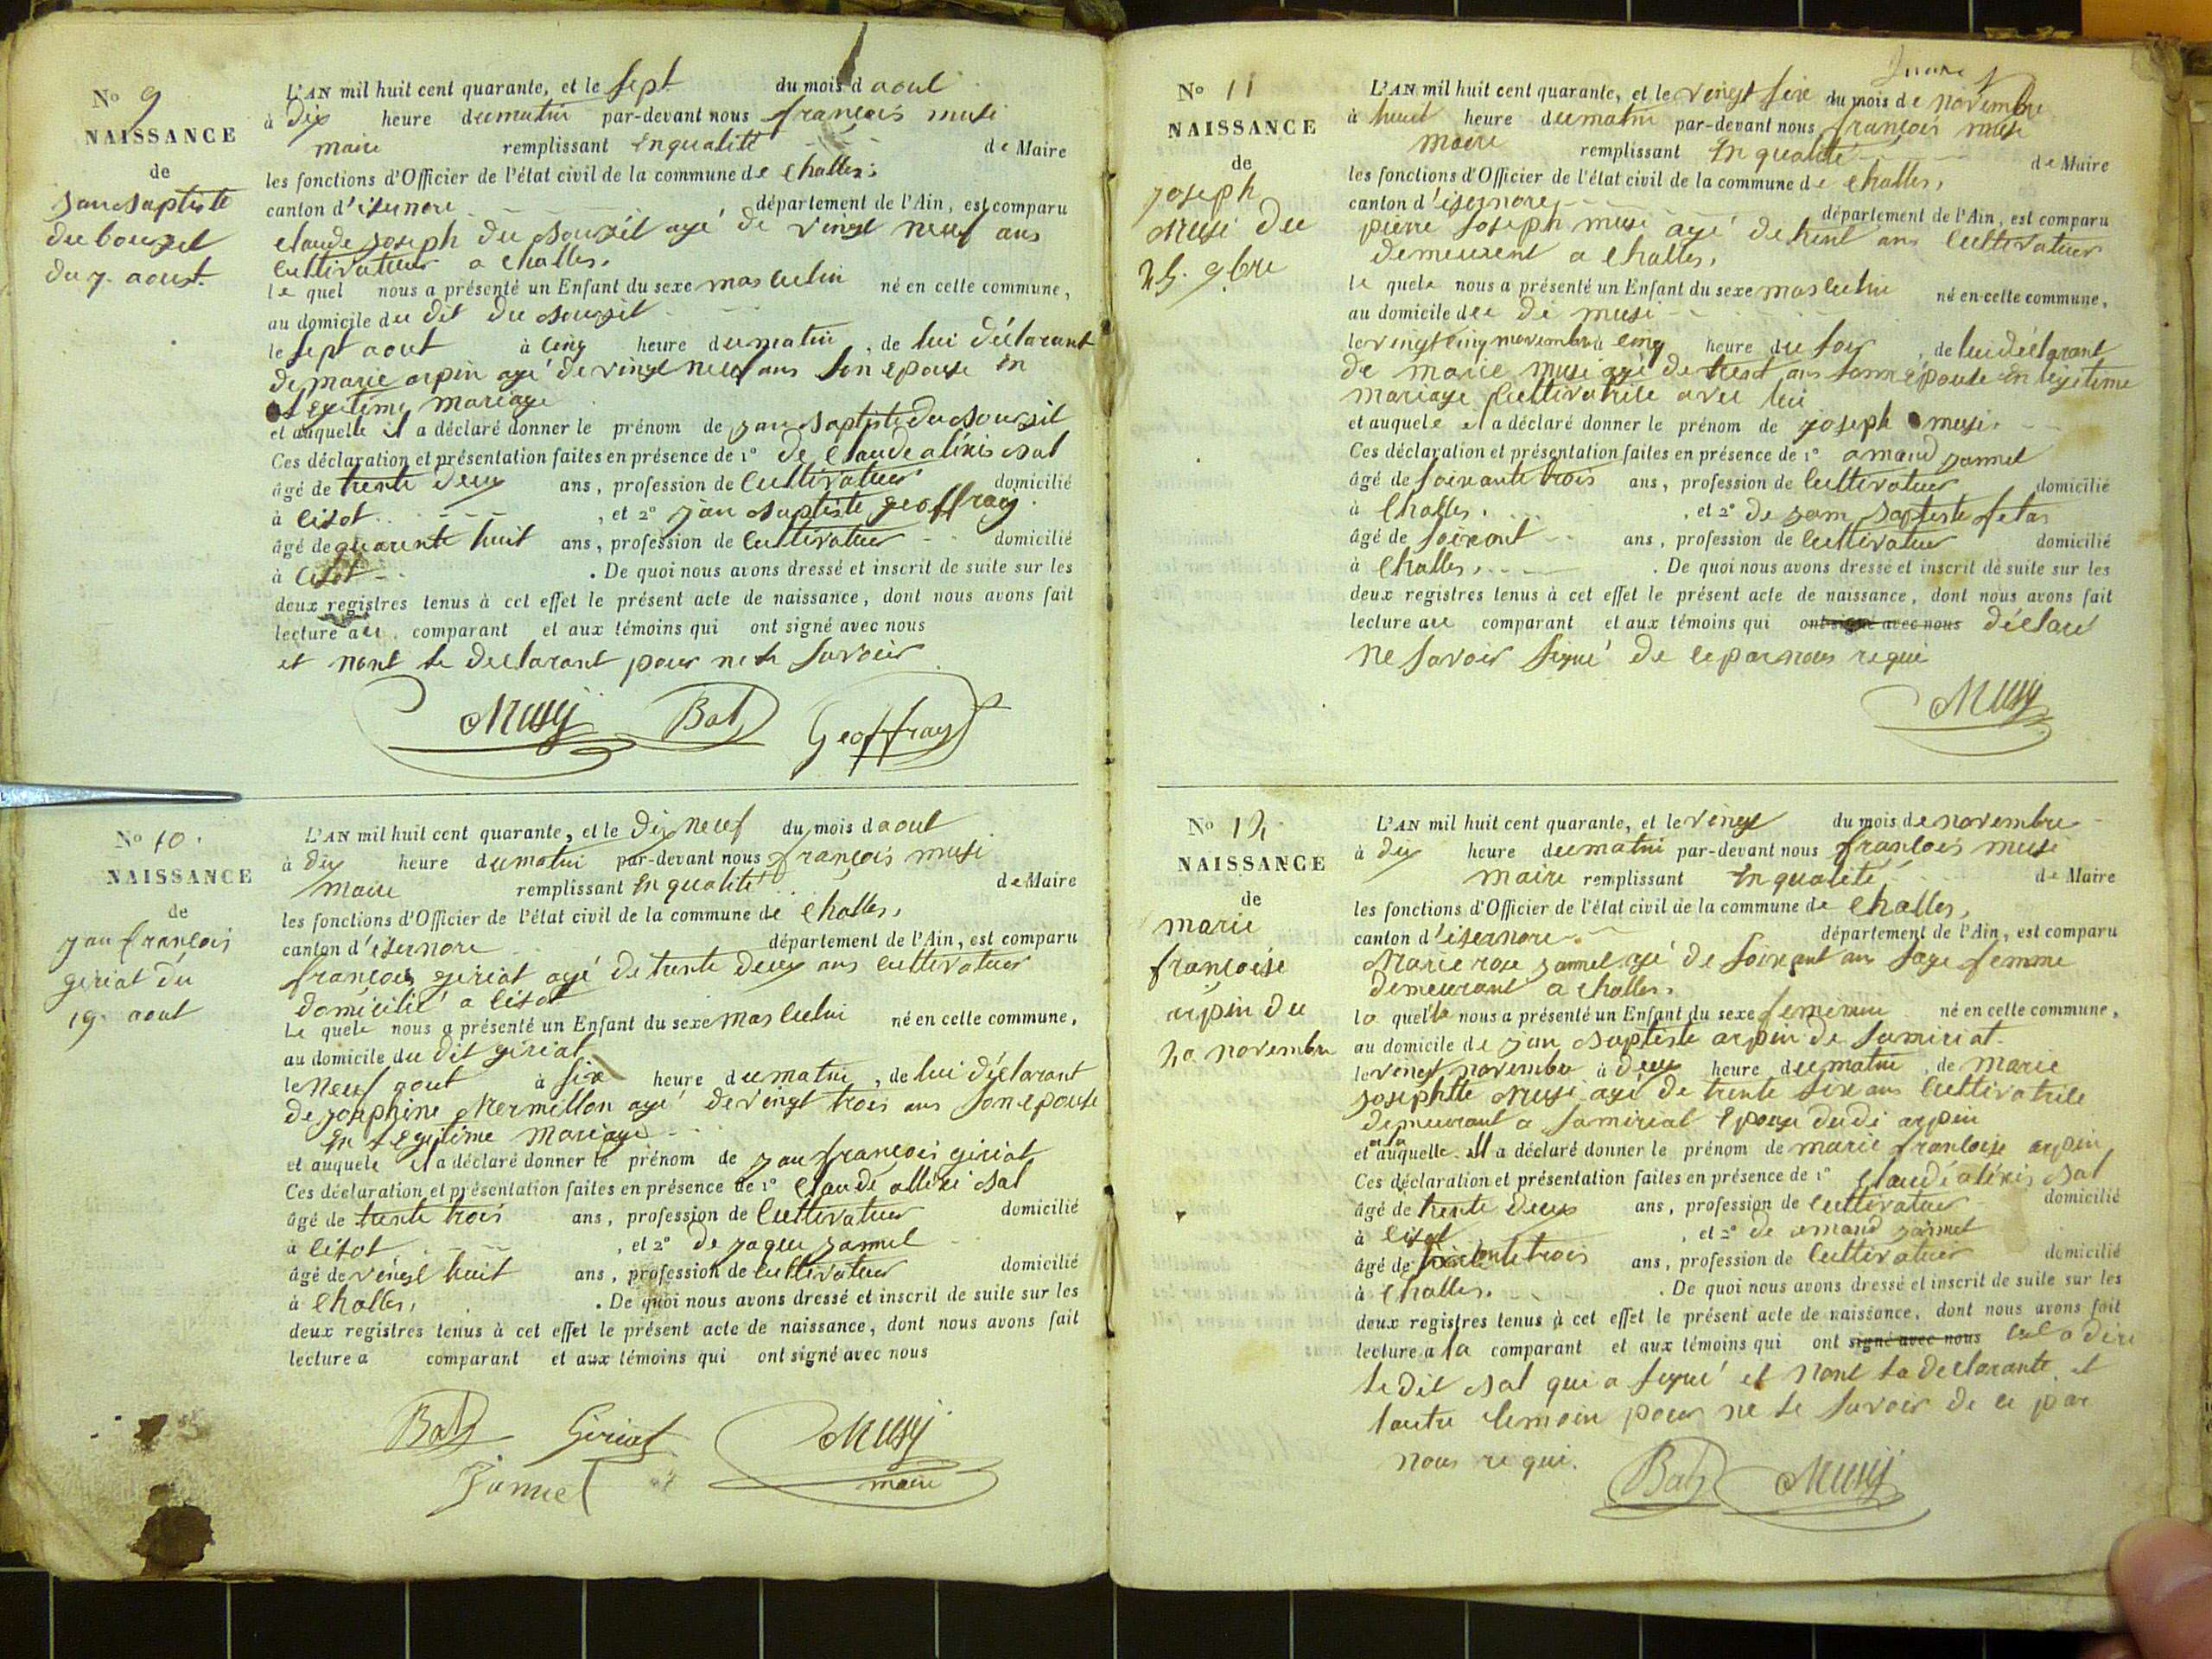 N° 9
NAISSANCE
de
jan baptiste
du bouzzil
du 7. aoust.
L'AN mil huit cent quarante, et le sept du mois d aout
à dix heure du matin par-devant nous françois musi
maire remplissant en qualité de Maire
les fonctions d'Officier de l'état civil de la commune de challes.
canton d'isernore département de l'Ain, est comparu
claude joseph du bouzzil agé de vingt neuf ans
cultivateur a challes.
le quel nous a présenté un Enfant du sexe masculin né en cette commune,
au domicile du dit du bouzzil
le sept aout à cinq heure du matin, de lui déclarant
de marie arpin agé de vingt neuf ans son epouse en
legitime mariage
et auquelle il a déclaré donner le prénom de jan baptiste du bouzzil
Ces déclaration et présentation faites en présence de 1° de claude aléxis bal
âgé de trente deux ans, profession de cultivateur domicilié
à cisot, et 2° jan baptiste geoffray
âgé de quarente huit ans, profession de cultivateur domicilié
à cisot. De quoi nous avons dressé et inscrit de suite sur les
deux registres tenus à cet effet le présent acte de naissance, dont nous avons fait
lecture au comparant et aux témoins qui ont signé avec nous
et nont le declarant pour ne le savoir
Musy Bal Geoffray
N° 10.
NAISSANCE
de
jan françois
geriat du
19. aout
L'AN mil huit cent quarante, et le dix neuf du mois d aout
à dix heure du matin par-devant nous françois musi
maire remplissant en qualité de Maire
les fonctions d'Officier de l'état civil de la commune de challes,
canton d'isernore département de l'Ain, est comparu
françois geriat agé de trente deux ans cultivateur
domicilié a cisot
le quele nous a présenté un Enfant du sexe masculin né en cette commune,
au domicile du dit giriat.
le neuf aout à six heure du matin, de lui déclarant
de josephine Mermillon agé de vingt trois ans son epouse
en legitime mariage
et auquele il a déclaré donner le prénom de jan françois giriat
Ces déclaration et présentation faites en présence de 1° claude alléxi bal
âgé de trente trois ans, profession de cultivateur domicilié
à cisot, et 2° de jaque jannel
âgé de vengt huit ans, profession de cultivateur domicilié
à challes, . De quoi nous avons dressé et inscrit de suite sur les
deux registres tenus à cet effet le présent acte de naissance, dont nous avons fait
lecture a comparant et aux témoins qui ont signé avec nous
Bal Giriat Musy
Jannel maire
N° 11
NAISSANCE
de
joseph
Musi du
25. 9bre
L'AN mil huit cent quarante, et le vingt six du mois de novembre
à huit heure du matin par-devant nous françois musi
maire remplissant en qualité de Maire
les fonctions d'Officier de l'état civil de la commune de challes,
canton d'isernore département de l'Ain, est comparu
pierre joseph musi agé de trent ans cultivateur
demeurent a challes,
le quele nous a présenté un Enfant du sexe masculin né en cette commune,
au domicile du di musi
le vingt cinq novembre à cinq heure du soir, de lui déclarant
de marie musi agé de trent ans sonne épouse en legitime
mariage cultivatrice avec lui
et auquele il a déclaré donner le prénom de joseph musi.
Ces déclaration et présentation faites en présence de 1° amand jannel
âgé de soixante trois ans, profession de cultivateur domicilié
à challes, , et 2° de jam baptiste fetas
âgé de soixont ans, profession de cultivateur domicilié
à challes, . De quoi nous avons dressé et inscrit de suite sur les
deux registres tenus à cet effet le présent acte de naissance, dont nous avons fait
lecture au comparant et aux témoins qui ont signé avec nous déclaré
ne savoir signé de ce par nous requi
Musy
N° 12
NAISSANCE
de
marie
françoise
arpin du
20 novembre
L'AN mil huit cent quarante, et le vengt du mois de novembre
à dix heure du matin par-devant nous françois musi
maire remplissant en qualité de Maire
les fonctions d'Officier de l'état civil de la commune de challes,
canton d'isernore département de l'Ain, est comparu
Marie rose jannel agé de soixant ans sage femme
demeurant a challes.
la quella nous a présenté un Enfant du sexe femenin né en cette commune,
au domicile de jan baptiste arpin de samiriat.
le vengt novembre à deux heure du matin, de marie
josephtte Musi agé de trente six ans cultivatrice
demeurant a samiriat epouse dudi arpin
a la
et auquelle il a déclaré donner le prénom de marie françoise arpin
Ces déclaration et présentation faites en présence de 1° claude aléxis bal
âgé de trente deux ans, profession de cultivateur domicilié
à cisot, et 2° de amand jannet
âgé de soixente trois ans, profession de cultivateur domicilié
à challes. . De quoi nous avons dressé et inscrit de suite sur les
deux registres tenus à cet effet le présent acte de naissance, dont nous avons fait
lecture a la comparant et aux témoins qui ont signé avec nous cest a dire
le dit bal qui a signé et nont la declarante et
lautre temoin pour ne le savoir de ce par
nous requi.
Bal Musy